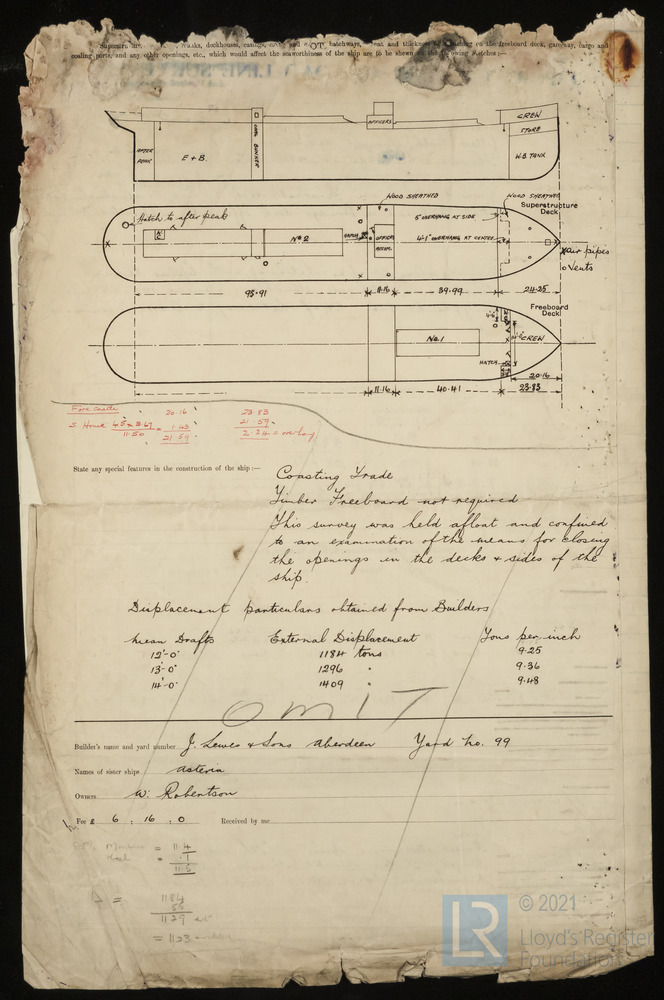 hatchways,
on the freeboard deck, gangway, cargo and
coaling ports, and any other openings, etc., which would affect the seaworthiness of the ship are to be shown
AFTER PEAK
E + B.
BUNKER
OFFICERS
CREW
STORE
W.B. TANK
WOOD SHEATHED
WOOD SHEATHED
Superstructure Deck
Hatch to after peak
6" OVERHANG AT SIDE
No 2
HATCH
OFFICERS ACCOM.
4'-1" OVERHANG AT CENTRE
x air pipes
o Vents
95·91
11·16
39·99
24·25
Freeboard Deck
No 1
CREW
HATCH
20·16
11·16
40·41
23·83
Fore castle
20·16
23·83
S. House
11·50
= 1·43
21·59
21·59
2·24 = overhang
State any special features in the construction of the ship :—
Coasting Trade
Timber Freeboard not required
This survey was held afloat and confined
to an examination of the means for closing
the openings in the decks & sides of the
ship.
Displacement particulars obtained from Builders
Mean Drafts External Displacement Tons per inch
12'-0" 1184 tons 9·25
13'-0" 1296 " 9·36
14'-0" 1409 " 9·48
OMIT
Builder's name and yard number J. Lewis & Sons Aberdeen Yard No. 99
Names of sister ships Asteria
Owners W. Robertson
Fee £ 6 : 16 : 0 Received by me
= 11·4
= ·1
11·5
= 1184
55
1129
= 1123
LR © 2021
Lloyd's Register
Foundation